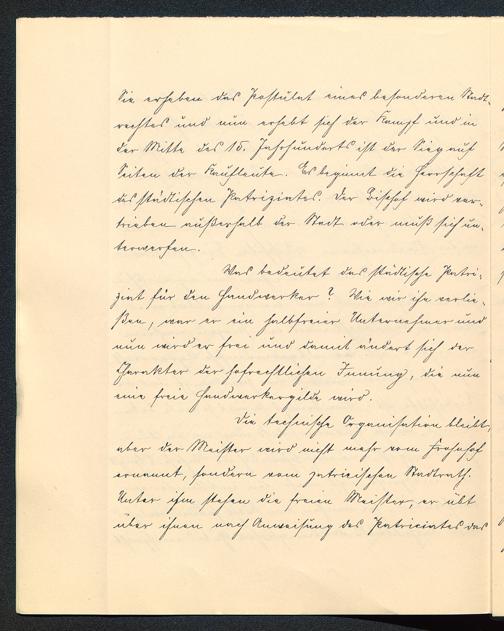 Sie erheben das Postulat eines besonderen Stadt-
rechtes und nun erhebt sich der Kampf und in
der Mitte des 15. Jahrhunderts ist der Sieg auf
Seiten der Kaufleute. Es beginnt die Herrschaft
des städtischen Patriziates. Der Bischof wird ver-
trieben außerhalb der Stadt oder muß sich un-
terwerfen.
Was bedeutet das städtische Patri-
ziat für den Handwerker? Wie wir ihn verlie-
ßen, war er ein halbfreier Unternehmer und
nun wird er frei und damit ändert sich der
Charakter der hofrechtlichen Innung, die nun
eine freie Handwerkergilde wird.
Die technische Organisation bleibt,
aber der Meister wird nicht mehr vom Frohnhof
ernannt, sondern vom patricischen Stadtrath.
Unter ihm stehen die freien Meister, er übt
über ihnen nach Anweisung des Patriciates das